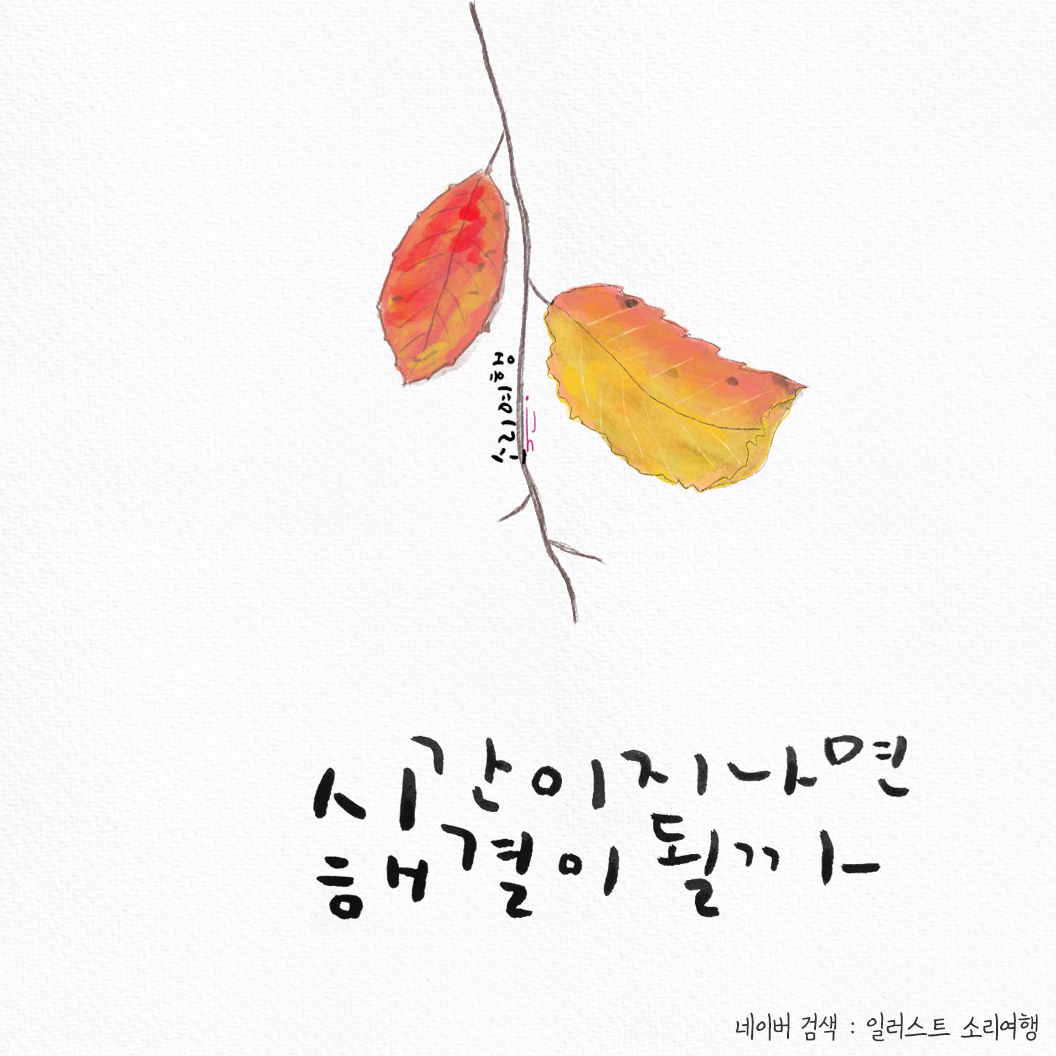 소리여행
시간이지나면
해결이될까
네이버 검색 : 일러스트 소리여행